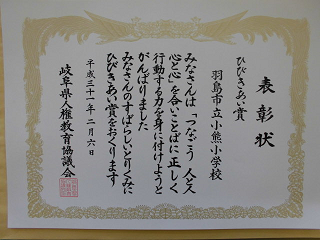 表彰状
ひびきあい賞
羽島市立小熊小学校
みなさんは「つなごう 人と人
心と心」を合いことばに正しく
行動する力を身に付けようと
がんばりました
みなさんのすばらしいとりくみに
ひびきあい賞をおくります
平成三十一年二月六日
岐阜県人権教育協議会